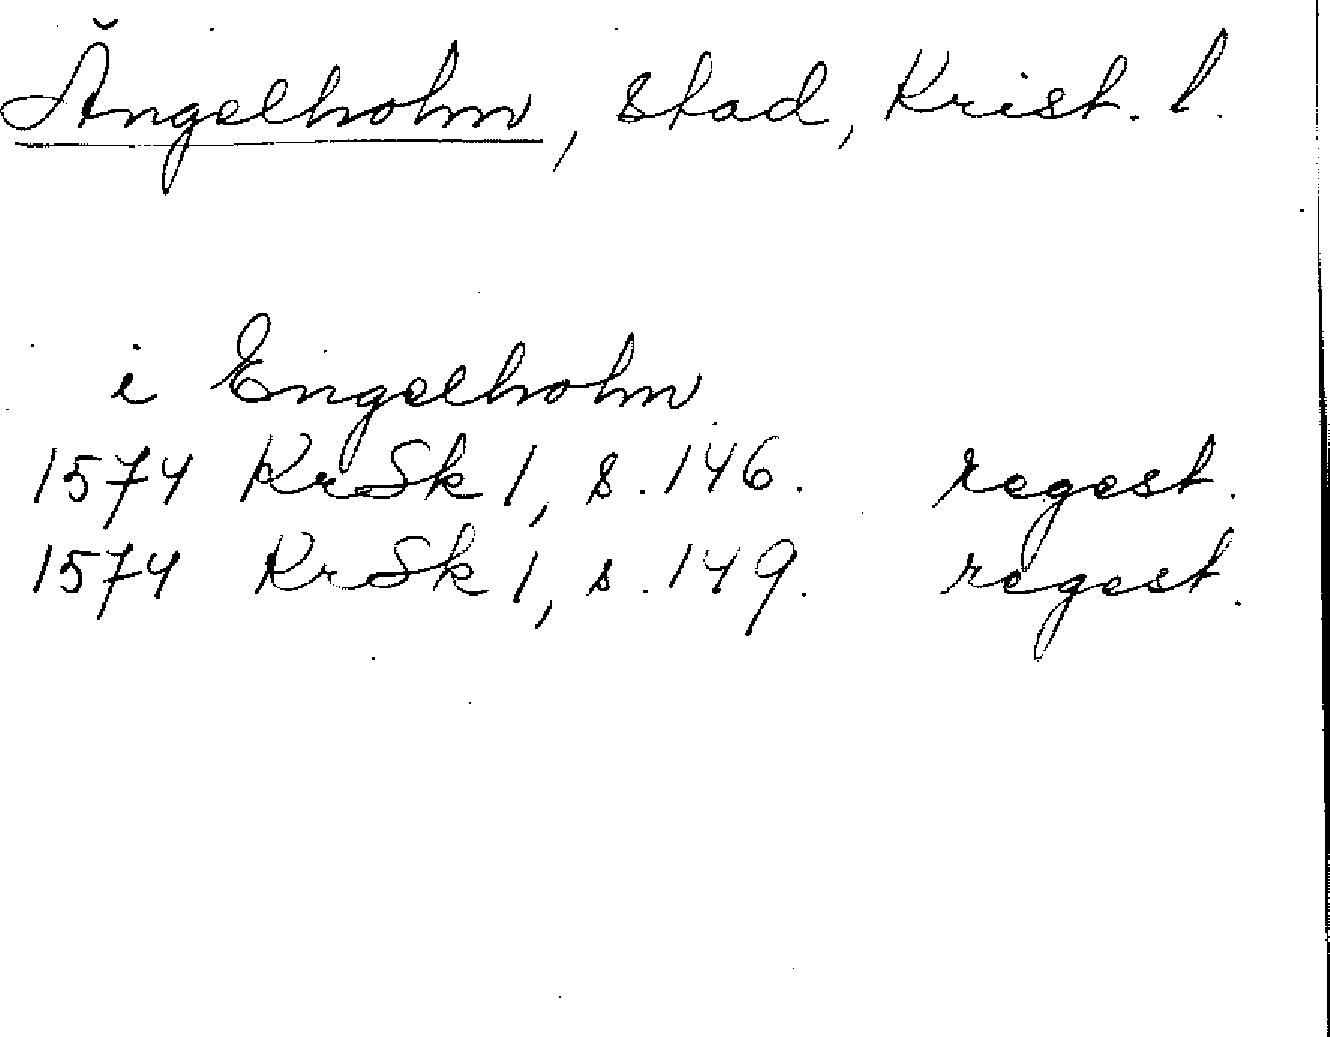 Ängelholm, stad, Krist. l.
i Engelholm
1574 KrSk 1, s. 146. regest.
1574 KrSk 1, s. 149. regest.